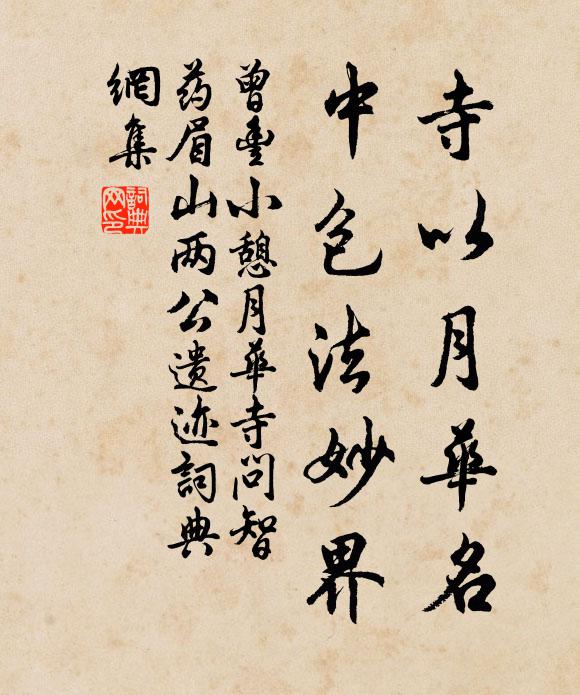 寺以月華名
中包法妙界
曾豐小憩月華寺問智
药眉山两公遗迹詞典
網集
詞典網印